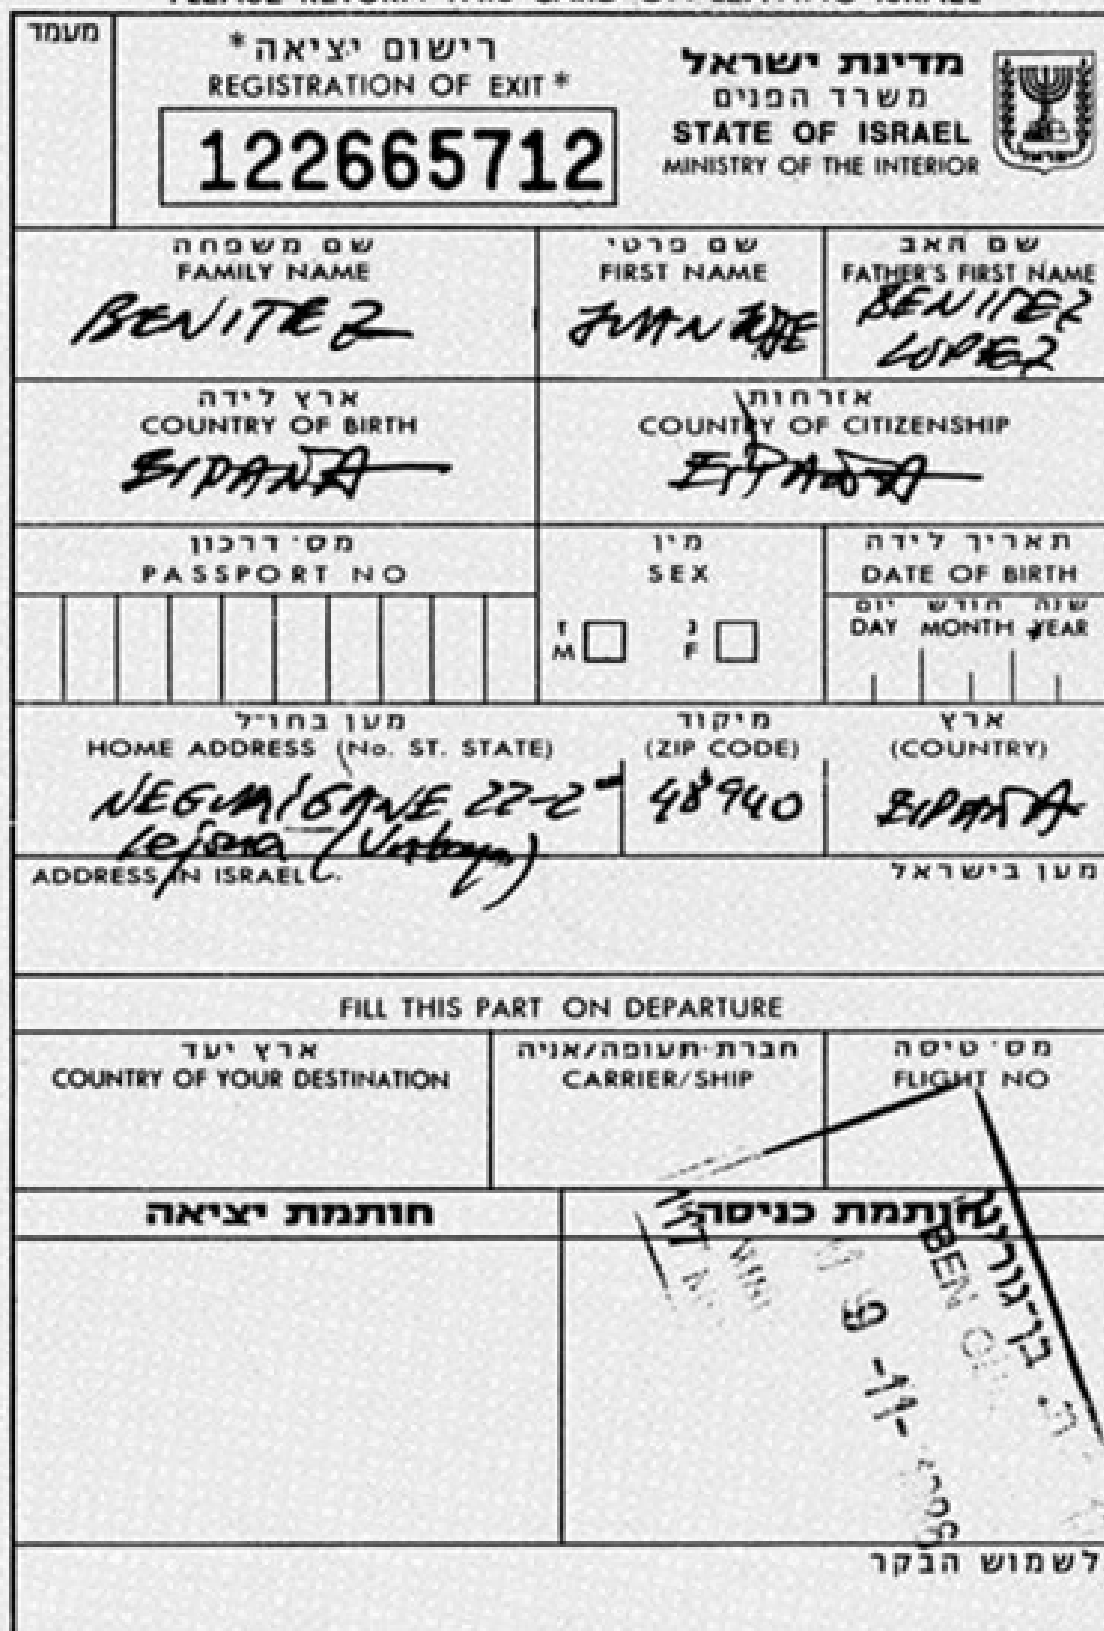 PLEASE RETURN THIS CARD ON LEAVING ISRAEL
מעמד
רישום יציאה*
REGISTRATION OF EXIT*
122665712
מדינת ישראל
משרד הפנים
STATE OF ISRAEL
MINISTRY OF THE INTERIOR
ישראל
שם משפחה
FAMILY NAME
BENITEZ
שם פרטי
FIRST NAME
JUAN JOSE
שם האב
FATHER'S FIRST NAME
BENITEZ
LOPEZ
ארץ לידה
COUNTRY OF BIRTH
ESPAÑA
אזרחות
COUNTRY OF CITIZENSHIP
ESPAÑA
מס' דרכון
PASSPORT NO
מין
SEX
ז
M
נ
F
תאריך לידה
DATE OF BIRTH
יום חודש שנה
DAY MONTH YEAR
מען בחו"ל
HOME ADDRESS (No. ST. STATE)
22-2
Lejona
מיקוד
(ZIP CODE)
48940
ארץ
(COUNTRY)
ESPAÑA
ADDRESS IN ISRAEL
מען בישראל
FILL THIS PART ON DEPARTURE
ארץ יעד
COUNTRY OF YOUR DESTINATION
חברת-תעופה/אניה
CARRIER/SHIP
מס' טיסה
FLIGHT NO
חותמת יציאה
חותמת כניסה
בן-גוריון
BEN
-11-
לשמוש הבקר